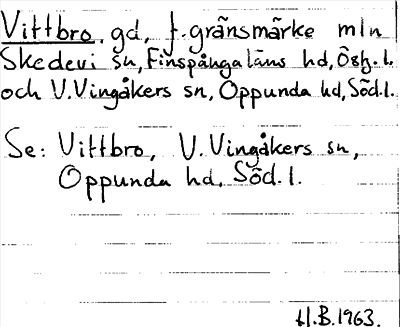 Vittbro, gd, f. gränsmärke mln
Skedevi sn, Finspånga läns hd, Östg. l.
och V. Vingåkers sn, Oppunda hd, Söd. l.
Se: Vittbro, V. Vingåkers sn,
Oppunda hd, Söd. l.
H.B. 1963.